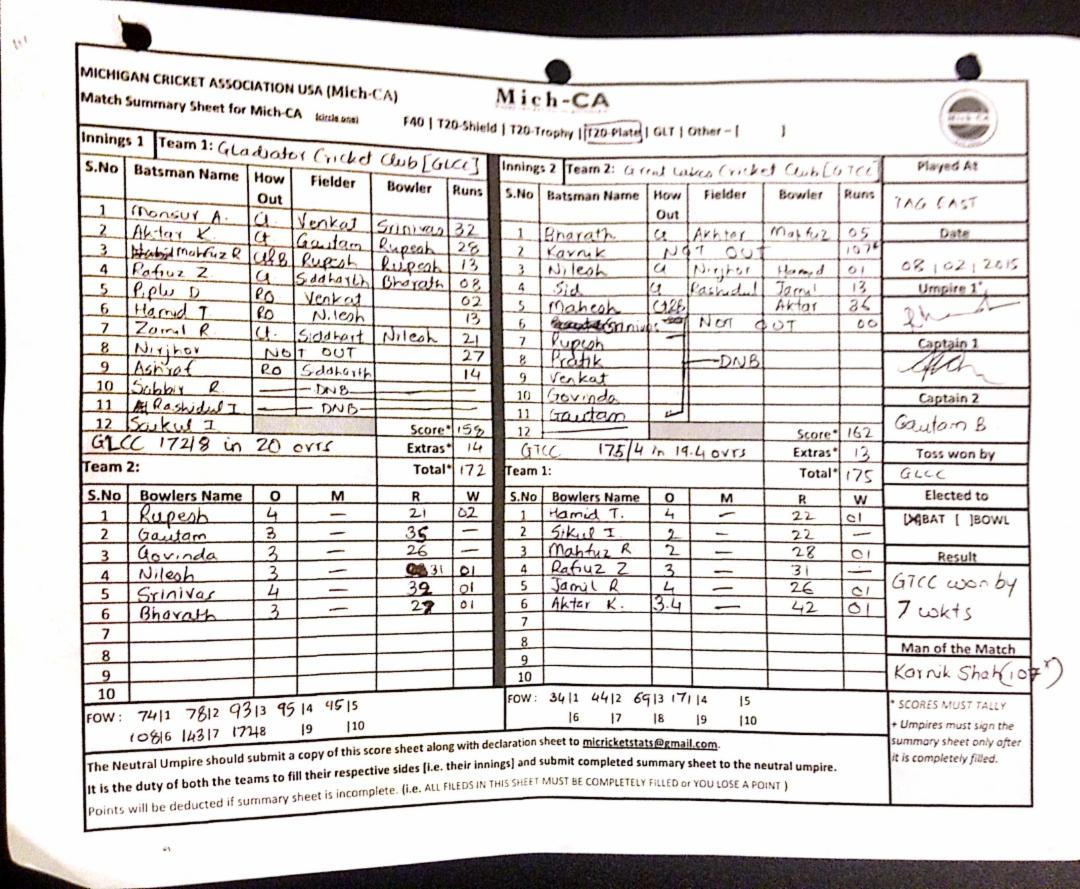 MICHIGAN CRICKET ASSOCIATION USA (Mich-CA)
Mich-CA
Match Summary Sheet for Mich-CA (circle one) F40 | T20-Shield | T20-Trophy | T20-Plate | GLT | Other – [ ]
Innings 1 Team 1: Gladiator Cricket Club [GLCC]
S.No Batsman Name How Out Fielder Bowler Runs
1 Monsur A. Ct. Venkat Srinivas 32
2 Aktar K. Ct Gautam Rupesh 28
3 Mahfuz R C&B Rupesh Rupesh 13
4 Rafiuz Z Ct. Siddharth Bharath 08
5 Piplu D RO Venkat 02
6 Hamid T RO Nilesh 13
7 Zamil R. Ct. Siddhart Nilesh 21
8 Nirjhor NOT OUT 27
9 Ashraf RO Siddharth 14
10 Sabbir R DNB
11 Rashidul I DNB
12 Saikul I Score* 158
GLCC 172/8 in 20 ovrs Extras* 14
Team 2: Total* 172
S.No Bowlers Name O M R W
1 Rupesh 4 — 21 02
2 Gautam 3 — 35 —
3 Govinda 3 — 26 —
4 Nilesh 3 — 31 01
5 Srinivas 4 — 32 01
6 Bharath 3 — 27 01
7
8
9
10
FOW : 74/1 78/2 93/3 95/4 95/5
108/6 143/7 172/8 |9 |10
Innings 2 Team 2: Great Lakes Cricket Club [GTCC]
S.No Batsman Name How Out Fielder Bowler Runs
1 Bharath Ct Akhtar Mahfuz 05
2 Karnik NOT OUT 107*
3 Nilesh Ct Nirjhor Hamid 01
4 Sid Ct Rashidul Jamil 13
5 Mahesh C&B Aktar 36
6 Srinivas NOT OUT 00
7 Rupesh
8 Pratik DNB
9 Venkat
10 Govinda
11 Gautam
12 Score* 162
GTCC 175/4 in 19.4 ovrs Extras* 13
Team 1: Total* 175
S.No Bowlers Name O M R W
1 Hamid T. 4 — 22 01
2 Sikul I 2 — 22 —
3 Mahfuz R 2 — 28 01
4 Rafiuz Z 3 — 31 —
5 Jamil R 4 — 26 01
6 Aktar K. 3.4 — 42 01
7
8
9
10
FOW : 34/1 44/2 69/3 171/4 |5
|6 |7 |8 |9 |10
Mich-CA
Played At
TAG EAST
Date
08/02/2015
Umpire 1
Captain 1
Captain 2
Gautam B
Toss won by
GLCC
Elected to
[X]BAT [ ]BOWL
Result
GTCC won by
7 wkts
Man of the Match
Karnik Shah (107*)
* SCORES MUST TALLY
+ Umpires must sign the
summary sheet only after
it is completely filled.
The Neutral Umpire should submit a copy of this score sheet along with declaration sheet to micricketstats@gmail.com.
It is the duty of both the teams to fill their respective sides [i.e. their innings] and submit completed summary sheet to the neutral umpire.
Points will be deducted if summary sheet is incomplete. (i.e. ALL FILEDS IN THIS SHEET MUST BE COMPLETELY FILLED or YOU LOSE A POINT )